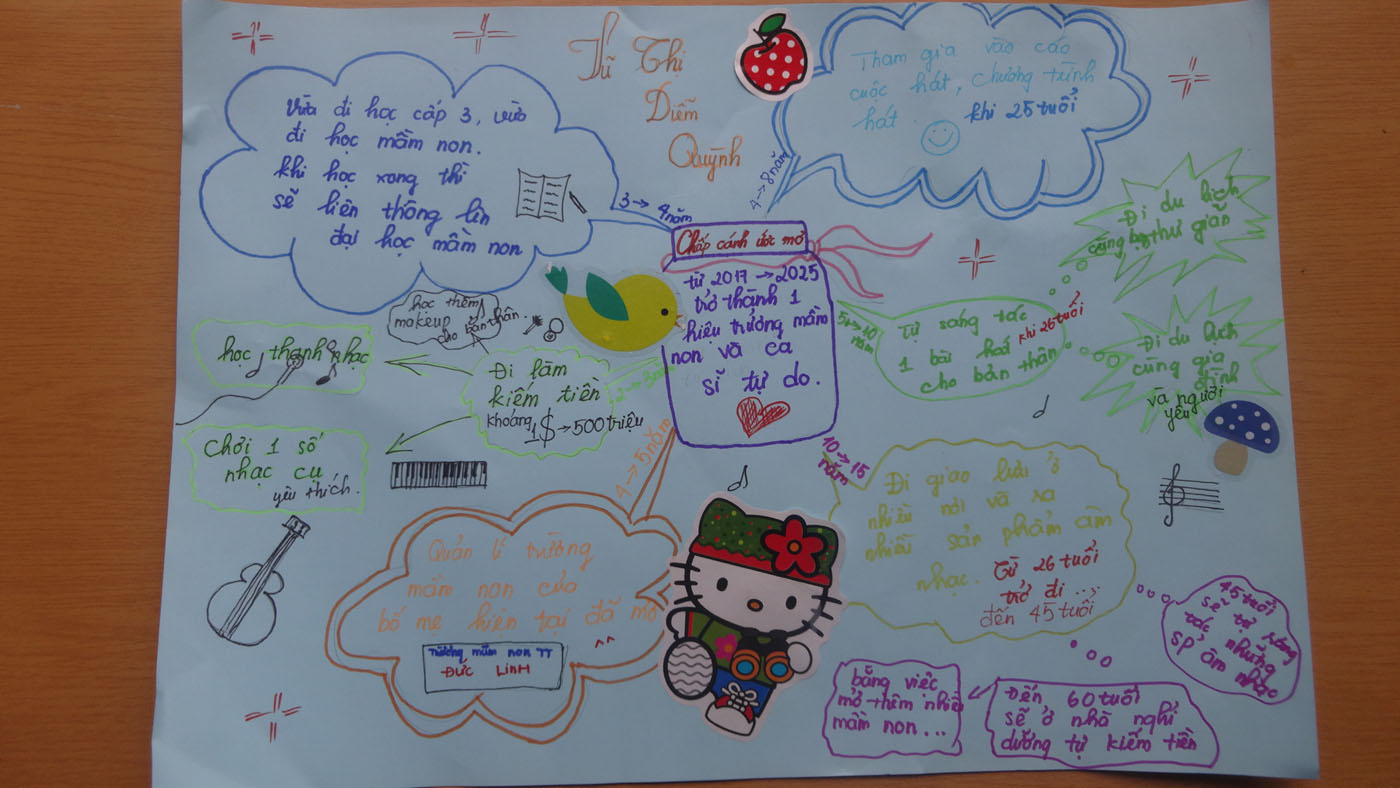 Từ Thị
Diễm
Quỳnh
Vừa đi học cấp 3, vừa
đi học mầm non.
khi học xong thì
sẽ liên thông lên
đại học mầm non
3 → 4 năm
Tham gia vào các
cuộc hát, chương trình
hát.
khi 25 tuổi
4 → 8 năm
Chấp cánh ước mơ
từ 2017 → 2025
trở thành 1
hiệu trưởng mầm
non và ca
sĩ tự do.
học thêm
makeup
cho bản thân.
học thanh nhạc
Đi làm
kiếm tiền
khoảng
1$ → 500 triệu
2 → 3 năm
Chơi 1 số
nhạc cụ
yêu thích.
5 → 10
năm
Tự sáng tác
1 bài hát
cho bản thân
khi 26 tuổi
Đi du lịch
thư giãn
Đi du lịch
cùng gia
đình
và người
yêu
4 → 5 năm
Quản lí trường
mầm non của
bố mẹ hiện tại đã mở
^^
Trường mầm non TT
ĐỨC LINH
10 → 15
năm
Đi giao lưu ở
nhiều nơi và ra
nhiều sản phẩm âm
nhạc.
Từ 26 tuổi
trở đi...
đến 45 tuổi
45 tuổi
sẽ tự sáng
tác những
sp âm nhạc
Đến 60 tuổi
sẽ ở nhà nghỉ
dưỡng tự kiếm tiền
bằng việc
mở thêm nhiều
mầm non...